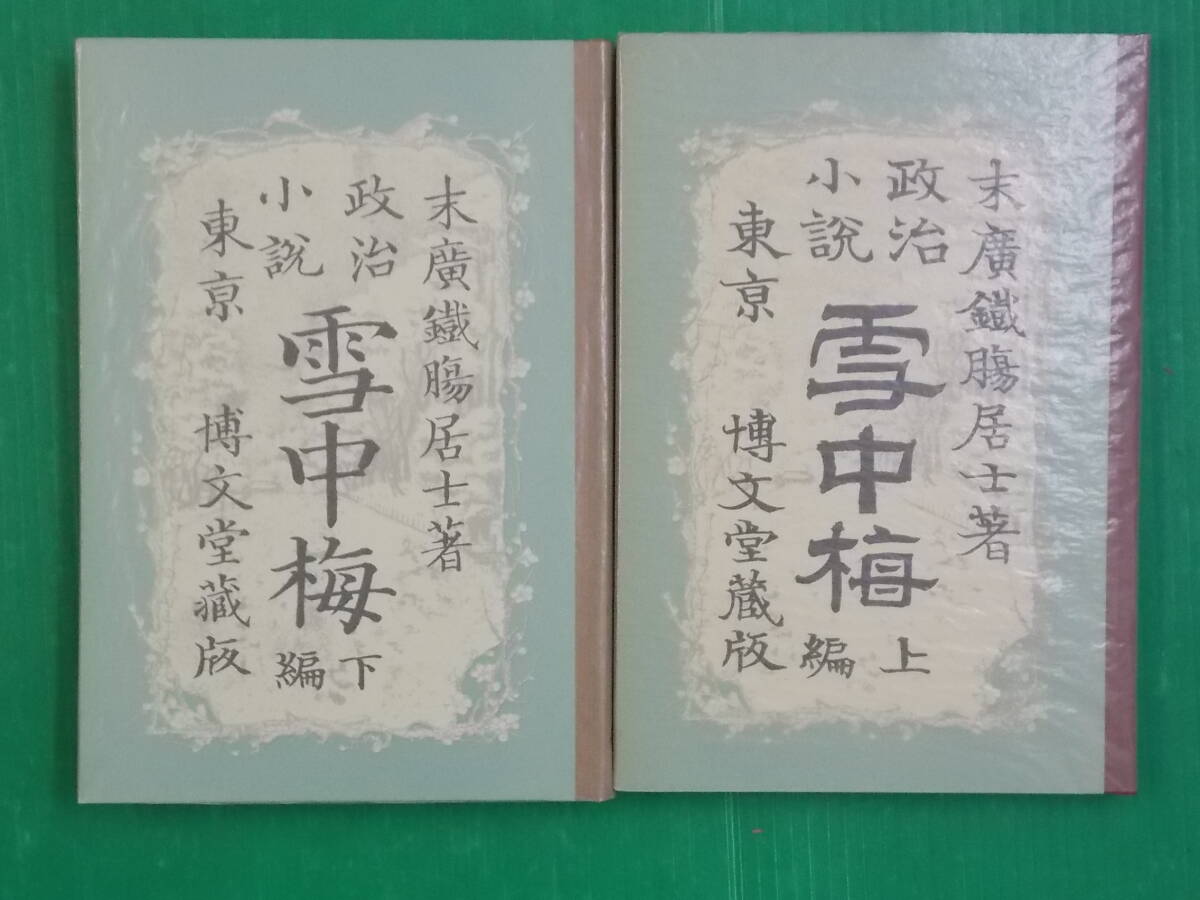 末廣鐵膓居士著
政治
小說
雪中梅
下
編
東京 博文堂藏版
末廣鐵膓居士著
政治
小說
雪中梅
上
編
東京 博文堂藏版